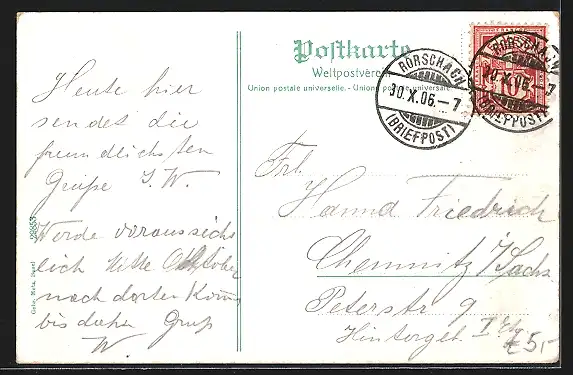 Postkarte
Weltpostverein
Union postale universelle. - Unione postale universale
RORSCHACH
30.X.06.-7
(BRIEFPOST)
RORSCHACH
30.X.06.-7
(BRIEFPOST)
10
Heute hier
sendet die
freundlichsten
Grüße J. W.
Werde voraussich
lich Mitte Oktober
nach dorten
bis dahin Gruß
W.
Frl.
Hanna Friedrich
Chemnitz i/Sachs.
Peterstr 9
Hintergeb I
€5,-
22853
Gebr. Metz, Basel